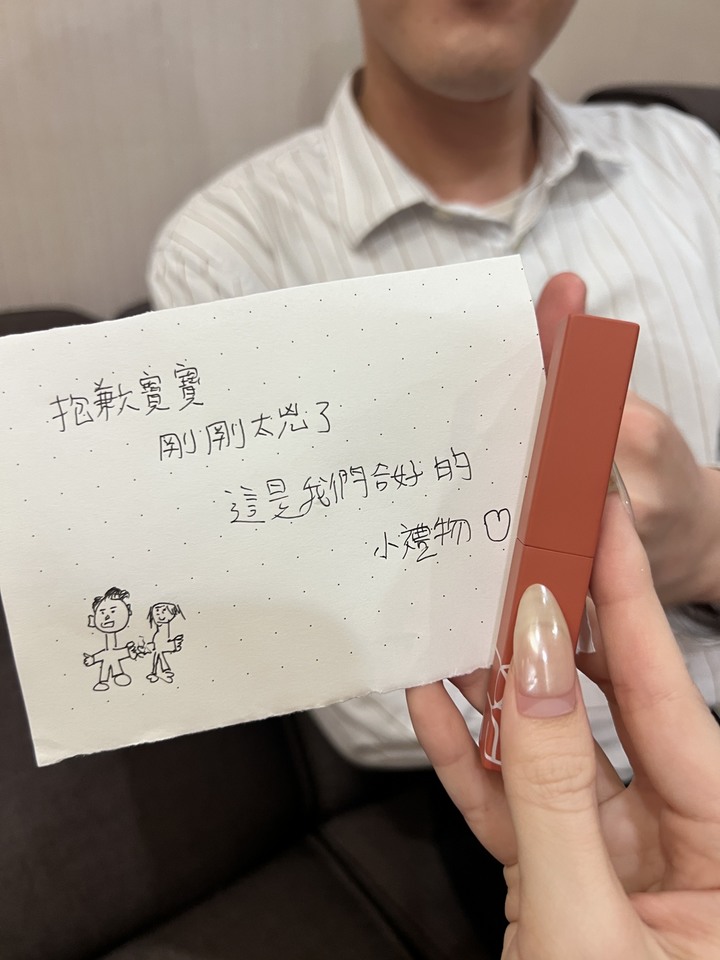 抱歉寶寶
剛剛太兇了
這是我們合好的
小禮物♡